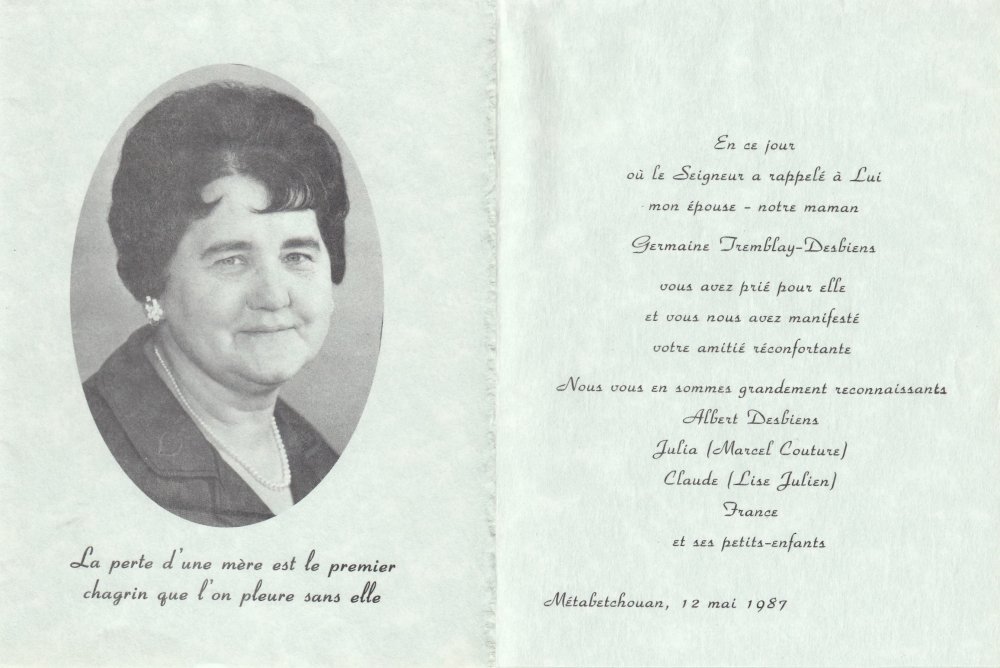 La perte d'une mère est le premier
chagrin que l'on pleure sans elle
En ce jour
où le Seigneur a rappelé à Lui
mon épouse - notre maman
Germaine Tremblay-Desbiens
vous avez prié pour elle
et vous nous avez manifesté
votre amitié réconfortante
Nous vous en sommes grandement reconnaissants
Albert Desbiens
Julia (Marcel Couture)
Claude (Lise Julien)
France
et ses petits-enfants
Métabetchouan, 12 mai 1987